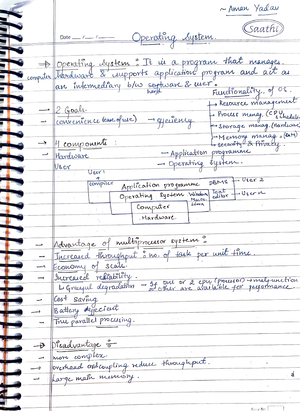 ~ Aman Yadav
Saathi
Date
Operating System
→ Operating System : It is a program that manages
computer hardware & supports application program and act as
an intermediary b/w software & user.
Functionality of OS.
→ Resource management
→ 2 Goals
→ Process manag. (CPU
- convenience (ease of use) → efficiency
→ Storage manag. (Hardware)
→ Memory manag. (RAM)
→ 4 components
→ Security & Privacy.
- Hardware - Application programme
User - Operating System.
User 1
compiler
Application programme DBMS User 2
Operating System Text editor User n
Computer
Hardware
- Advantage of multiprocessor system :
- Increased throughput : no. of task per unit time.
- Economy of scale.
- Increased reliability.
↳ Grayul degradation → If one or 2 cpu (process) → malfunction
or other are available for performance.
- Cost saving
→ Battery efficient
- True parallel processing.
→ Disadvantage :
- more complex.
- overhead or coupling reduce throughput.
- Large main memory.